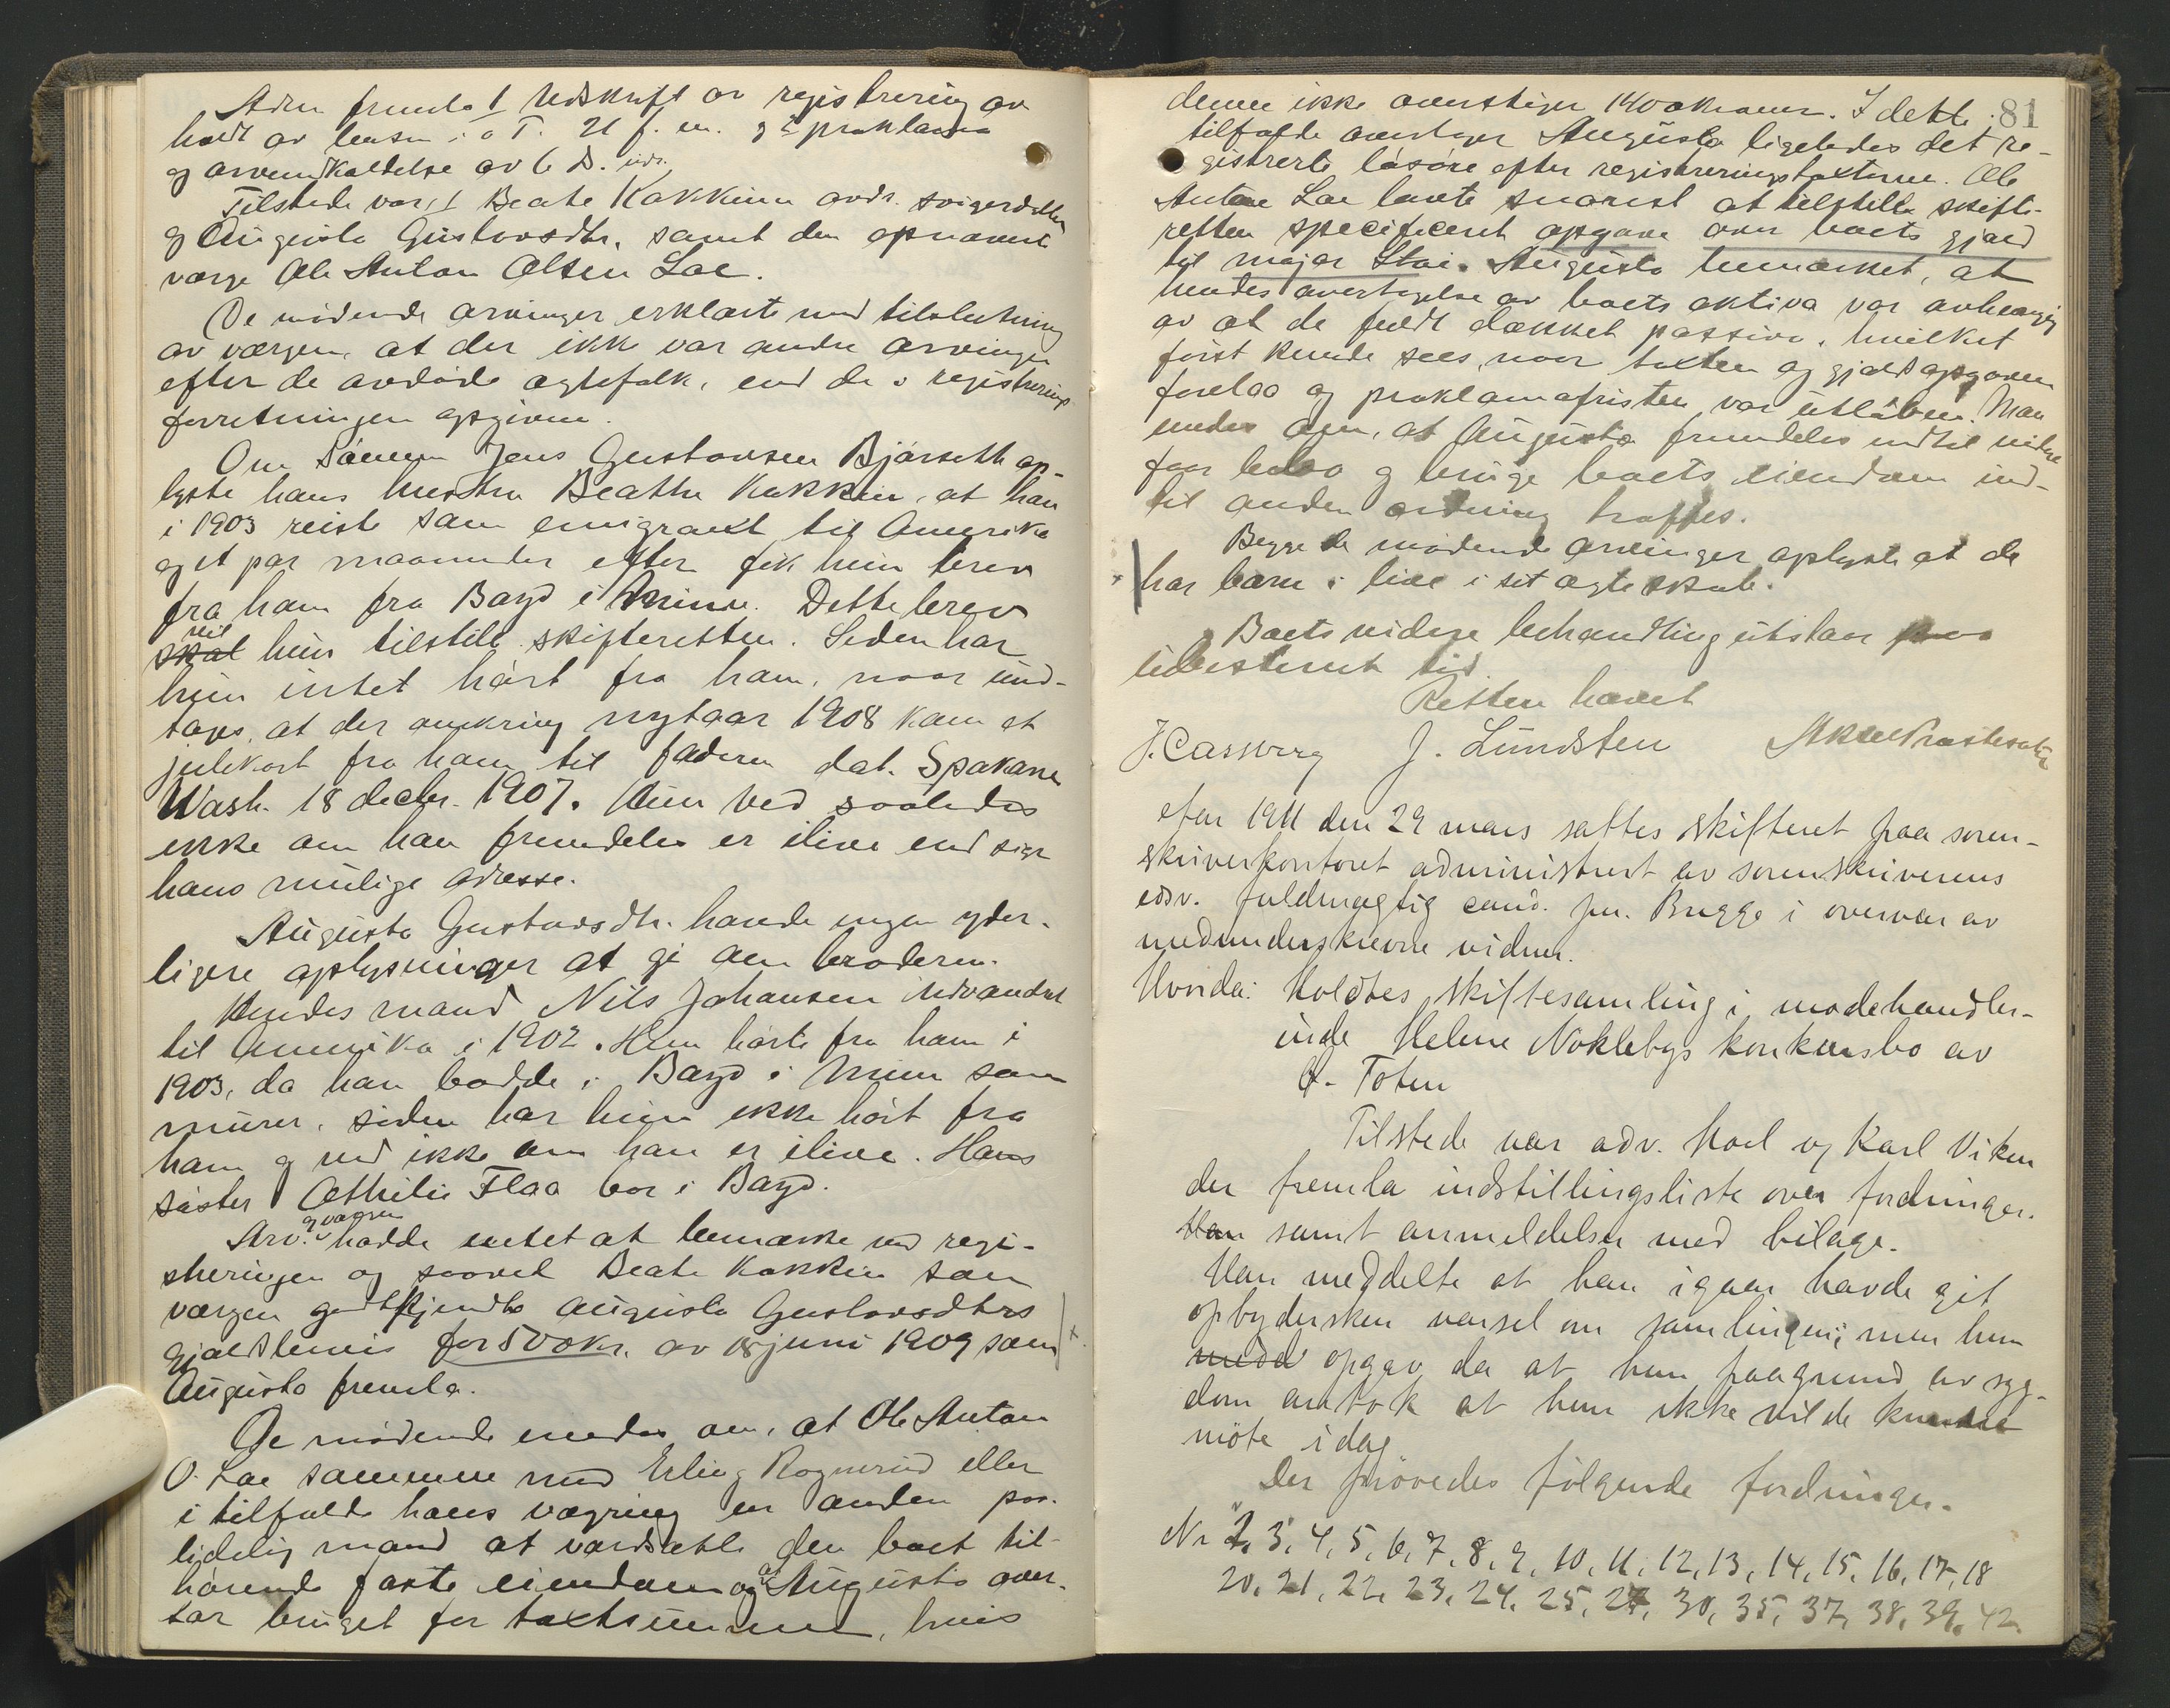 Adm fremla 1 Udskrift av registrering av
holdt av lensm. i ø. T. 21 f. m. og 2 proklama
og arveindkaldelse av 6 ds.
Tilstede var: 1 Beate Kakkinn avds. svigerdatter
og Augusta Gustavsdtr. samt den opnævnte
verge Ole Anton Olsen Loe.
De mødende arvinger erklærte med tilslutning
av vergen, at der ikke var andre arvinger
efter de avdøde egtefolk, end de i registrerings
forretningen opgivne.
Om sønnen Jens Gustavsen Bjørseth op-
lyste hans hustru Beathe Kakkin, at han
i 1903 reiste som emigrant til Amerika
og et par maaneder efter fik hun brev
fra ham fra Bayd i Minn. Dette brev
vil
skal hun tilstille skifteretten. Siden har
hun intet hørt fra ham, naar und-
tages, at der omkring nytaar 1908 kom et
julekort fra ham til faderen dat. Spokane
Wash. 18 decbr. 1907. Hun ved saaledes
ikke om han fremdeles er ilive end sige
hans mulige adresse.
Augusta Gustavsdtr. havde ingen yder-
ligere oplysninger at gi om broderen.
Hendes mand Nils Johansen utvandret
til Amerika i 1902. Hun hørte fra ham i
1903, da han bodde i Bayd i Minn som
murer, siden har hun ikke hørt fra
ham og ved ikke om han er ilive. Hans
søster Othilie Flaa bor i Bayd.
og vergen
Arv. hadde intet at bemærke ved regi-
streringen og saavel Beate Kakkin som
vergen godkjendte Augusta Gustavsdtrs
gjældsbevis for 500 kr. av 18 juni 1909 som
Augusta fremla.
De mødende enedes om, at Ole Anton
O. Loe sammen med Erling Rognerud eller
i tilfælde hans vægring en anden paa-
lidelig mand at værdsætte den boet til-
hørende faste eiendom og at Augusta over-
tar bruget for taxtsummen, hvis
81
denne ikke overstiger 1400 kroner. I dette
tilfælde overtager Augusta ligeledes det re-
gistrerte løsøre efter registreringstaxterne. Ole
Anton Loe lovte snarest at tilstille skifte-
retten specificeret opgave over boets gjæld
til major Stai. Augusta bemærket, at
hendes overtagelse av boets aktiva var avhængig
av at de fuldt dækket passiva, hvilket
først kunde sees, naar taxten og gjældsopgaven
forelaa og proklamafristen var utløben. Man
enedes om, at Augusta fremdeles indtil videre
faar bebo og bruge boets eiendom ind-
til anden ordning træffes.
Begge de mødende arvinger oplyste at de
har barn i live i sit ægteskab.
Boets videre behandling utstaar paa
ubestemt tid.
Retten hævet
J. Casserg J. Lundsten
Aar 1911 den 29 mars sattes skifteret paa soren-
skriverkontoret administrert av sorenskriverens
edsv. fuldmægtig cand. jur. Brugge i overvær av
medunderskrevne vidner.
Hvorda: Holdtes skiftesamling i modehandler-
inde Helene Nøklebys konkursbo av
Ø. Toten
Tilstede var adv. Hoel og Karl Viken
der fremla indstillingsliste over fordringer.
Han samt anmeldelser med bilage.
Han meddelte at han igaar havde git
opbydersken varsel om samlingen; men hun
medd opgav da at hun paagrund av syg-
dom antok at hun ikke vilde kunde
møte idag.
Der prøvedes følgende fordringer.
Nr 2, 3, 4, 5, 6, 7, 8, 9, 10, 11, 12, 13, 14, 15, 16, 17, 18
20, 21, 22, 23, 24, 25, 27, 30, 35, 37, 38, 39, 42.